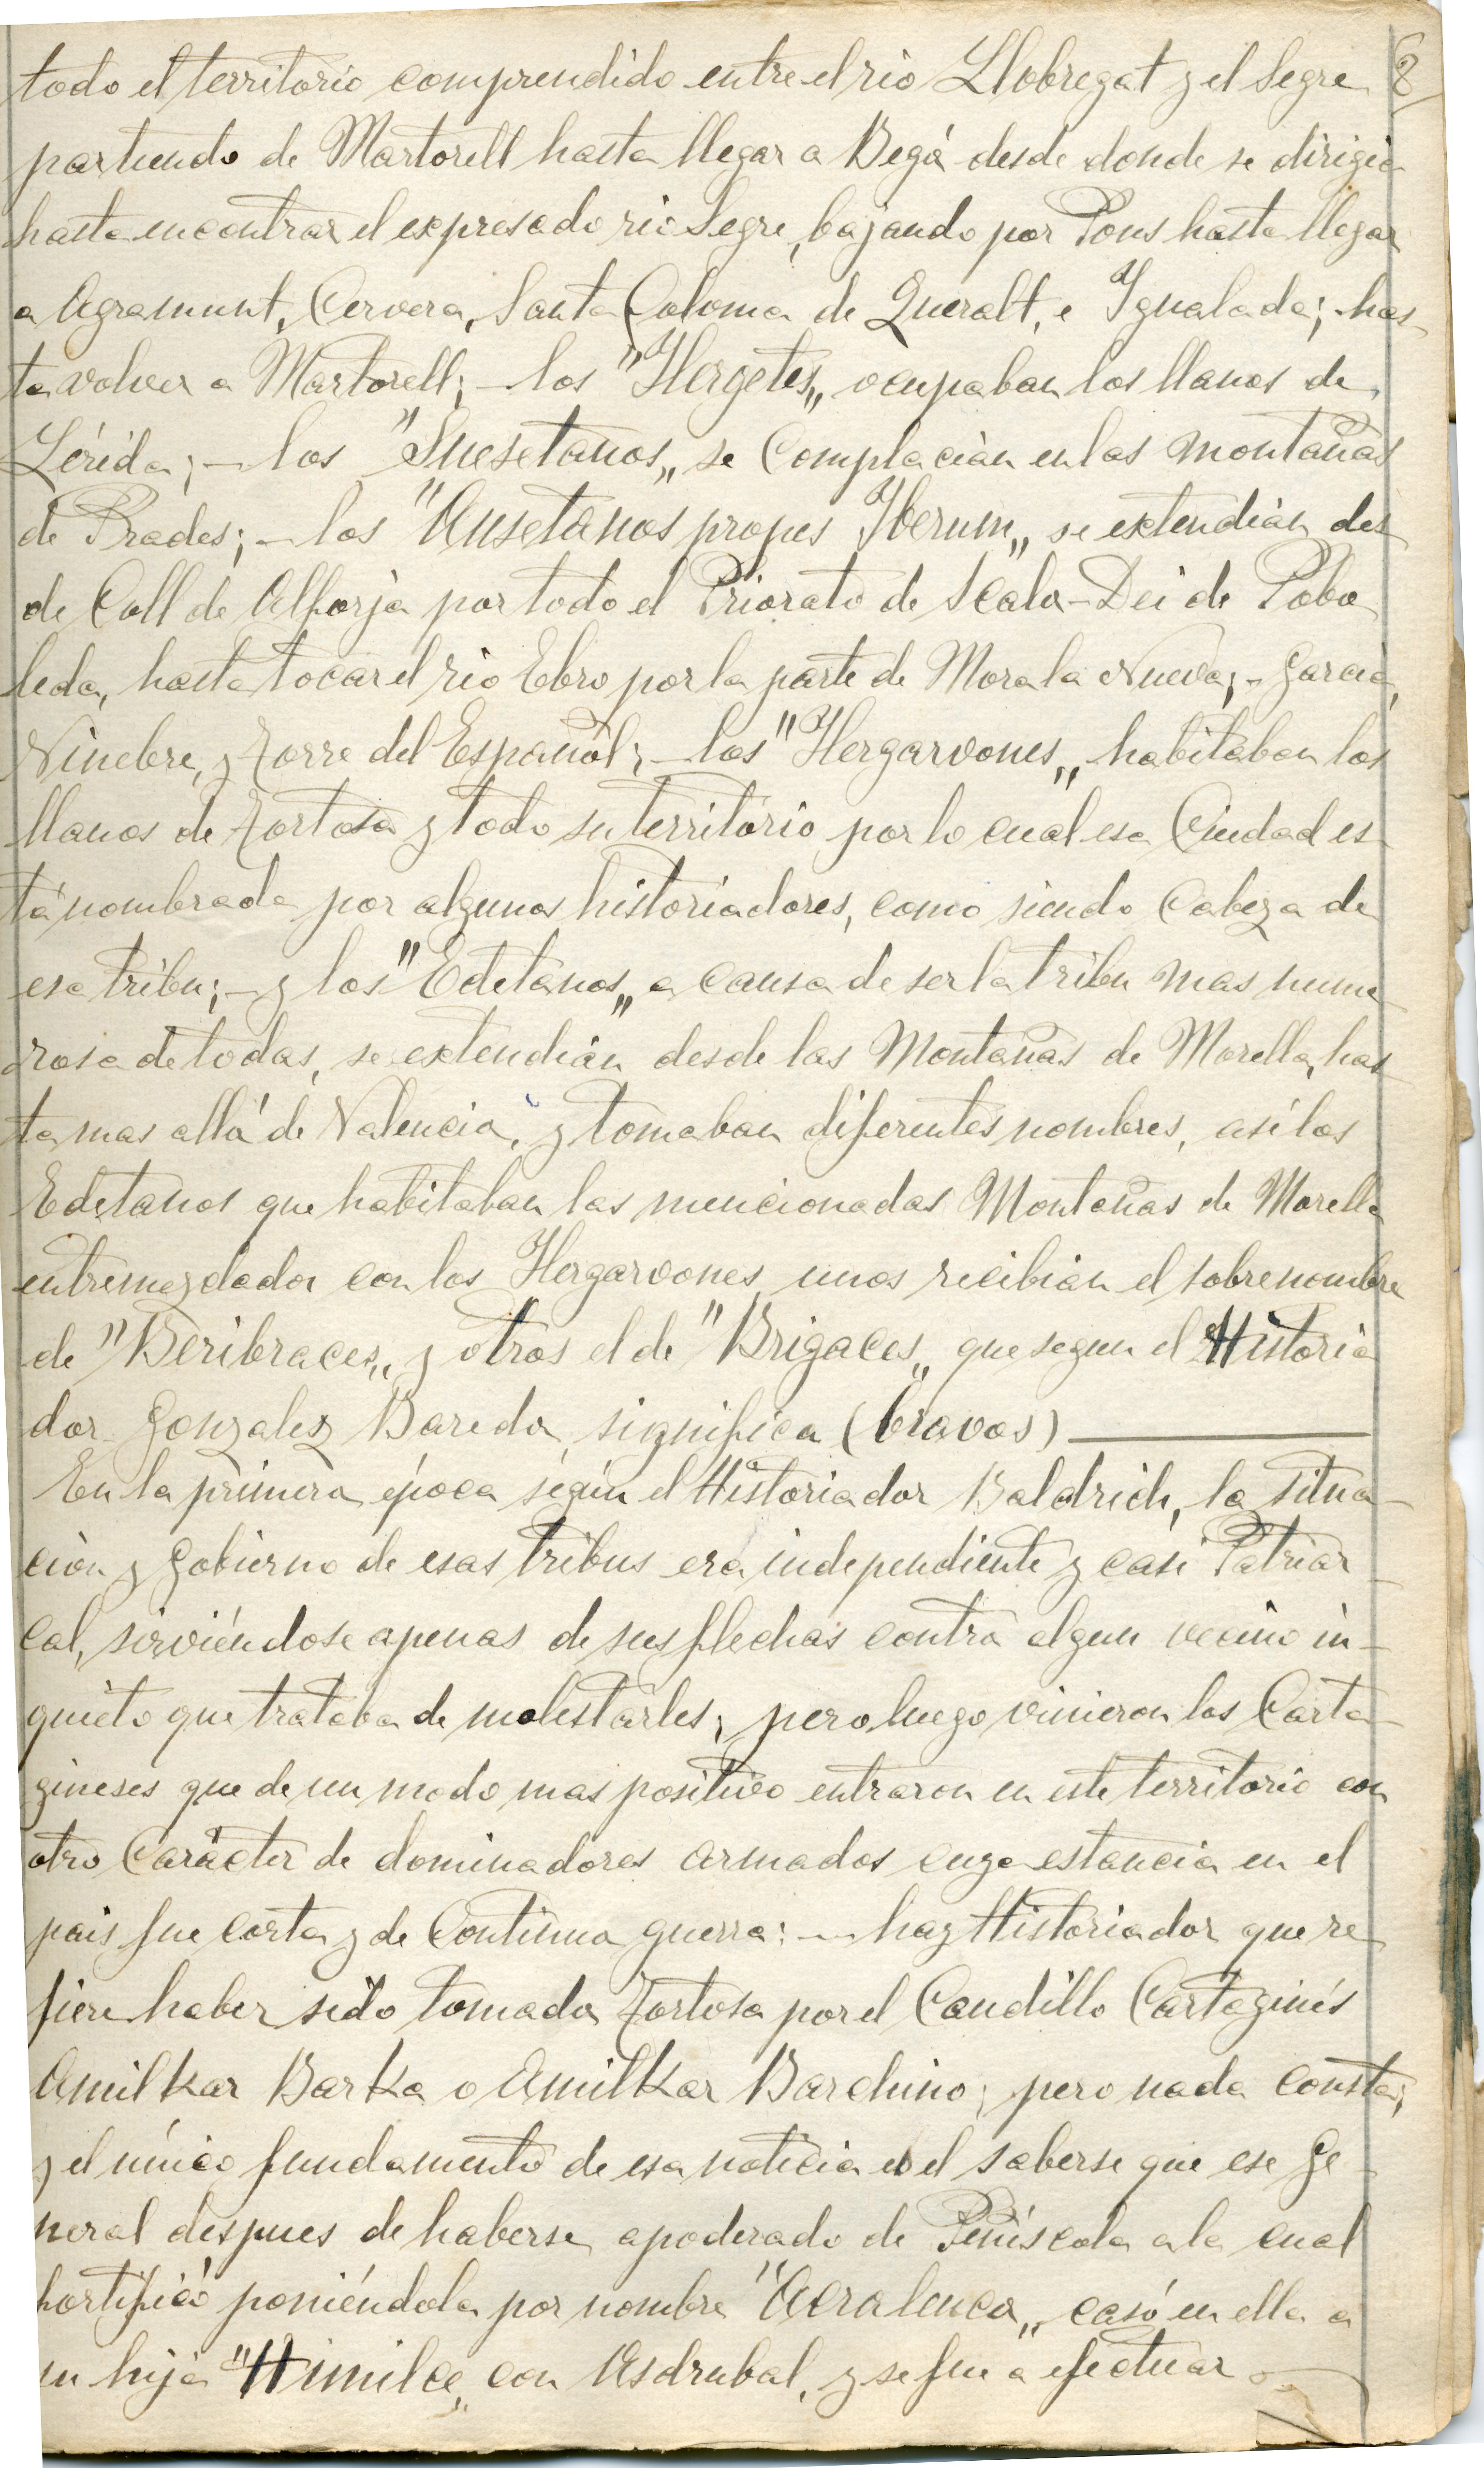 todo el territorio comprendido entre el rio Llobregat y el Segre 8
partiendo de Martorell hasta llegar a Begá desde donde se dirigia
hasta encontrar el expresado rio Segre, bajando por Pons hasta llegar
a Agramunt, Cervera, Santa Coloma de Queralt, e Igualada; has-
ta volver a Martorell; - los "Ilergetes„ ocupaban los llanos de
Lérida; - los "Suesetanos„ se Complacian en las montañas
de Prades; - los "Ausetanos propes Iberum„ se extendian des
de Coll de Alforja por todo el Priorato de Scala-Dei de Pobo
leda, hasta tocar el rio Ebro por la parte de Mora la Nueva; - Garcia,
Vinebre, y Torre del Español; - los "Ilergarvones„ habitaban los
llanos de Tortosa y todo su territorio por lo cual esa Ciudad es-
tá nombrada por algunos historiadores, como siendo Cabeza de
esa tribu; - y los "Edetanos„ a causa de ser la tribu mas nume-
rosa de todas, se extendian desde las Montañas de Morella, has-
ta mas allá de Valencia, y tomaban diferentes nombres, asi los
Edetanos que habitaban las mencionadas Montañas de Morella
entremezclados con los Ilergarvones unos recibian el sobrenombre
de "Beribraces„ y otros el de "Brigaces„ que segun el Historia
dor Gonzalez Bareda, significa (bravos)
En la primera época según el Historiador Baldrich, la situa-
ción y Gobierno de esas tribus era independiente y casi Patriar-
cal, sirviéndose apenas de sus flechas contra algun vecino in-
quieto que trataba de molestarles; pero luego vinieron los Carta-
gineses que de un modo mas positivo entraron en este territorio con
otro Carácter de dominadores armados cuya estancia en el
pais fue corta y de Continua guerra: - hay Historiador que re
fiere haber sido tomada Tortosa por el Caudillo Cartaginés
Amilkar Barka o Amilkar Barchino; pero nada consta;
y el único fundamento de esa noticia es el saberse que ese Ge-
neral despues de haberse apoderado de Peníscola a la cual
fortificó poniéndola por nombre "Acraleuca„ casó en ella a
su hija "Himilce„ con Asdrubal, y se fue a efectuar